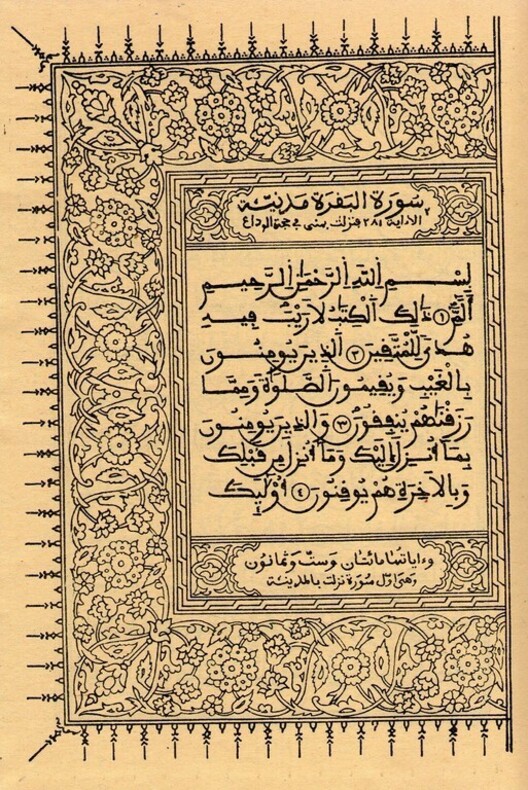 سورة البقرة مدنية
الا اية ٢٨١ فنزلت بمنى في حجة الوداع
بِسْمِ اللهِ الرَّحْمَٰنِ الرَّحِيمِ
أَلَمِّ ١ ذَٰلِكَ الْكِتَٰبُ لَا رَيْبَ فِيهِ
هُدىً لِّلْمُتَّقِينَ ٢ الَّذِينَ يُومِنُونَ
بِالْغَيْبِ وَيُقِيمُونَ الصَّلَوٰةَ وَمِمَّا
رَزَقْنَٰهُمْ يُنفِقُونَ ٣ وَالَّذِينَ يُومِنُونَ
بِمَا أُنزِلَ إِلَيْكَ وَمَا أُنزِلَ مِن قَبْلِكَ
وَبِالَاخِرَةِ هُمْ يُوقِنُونَ ٤ أُوْلَٰٓئِكَ
وءاياتها مائتان وست وثمانون
وهي اول سورة نزلت بالمدينة